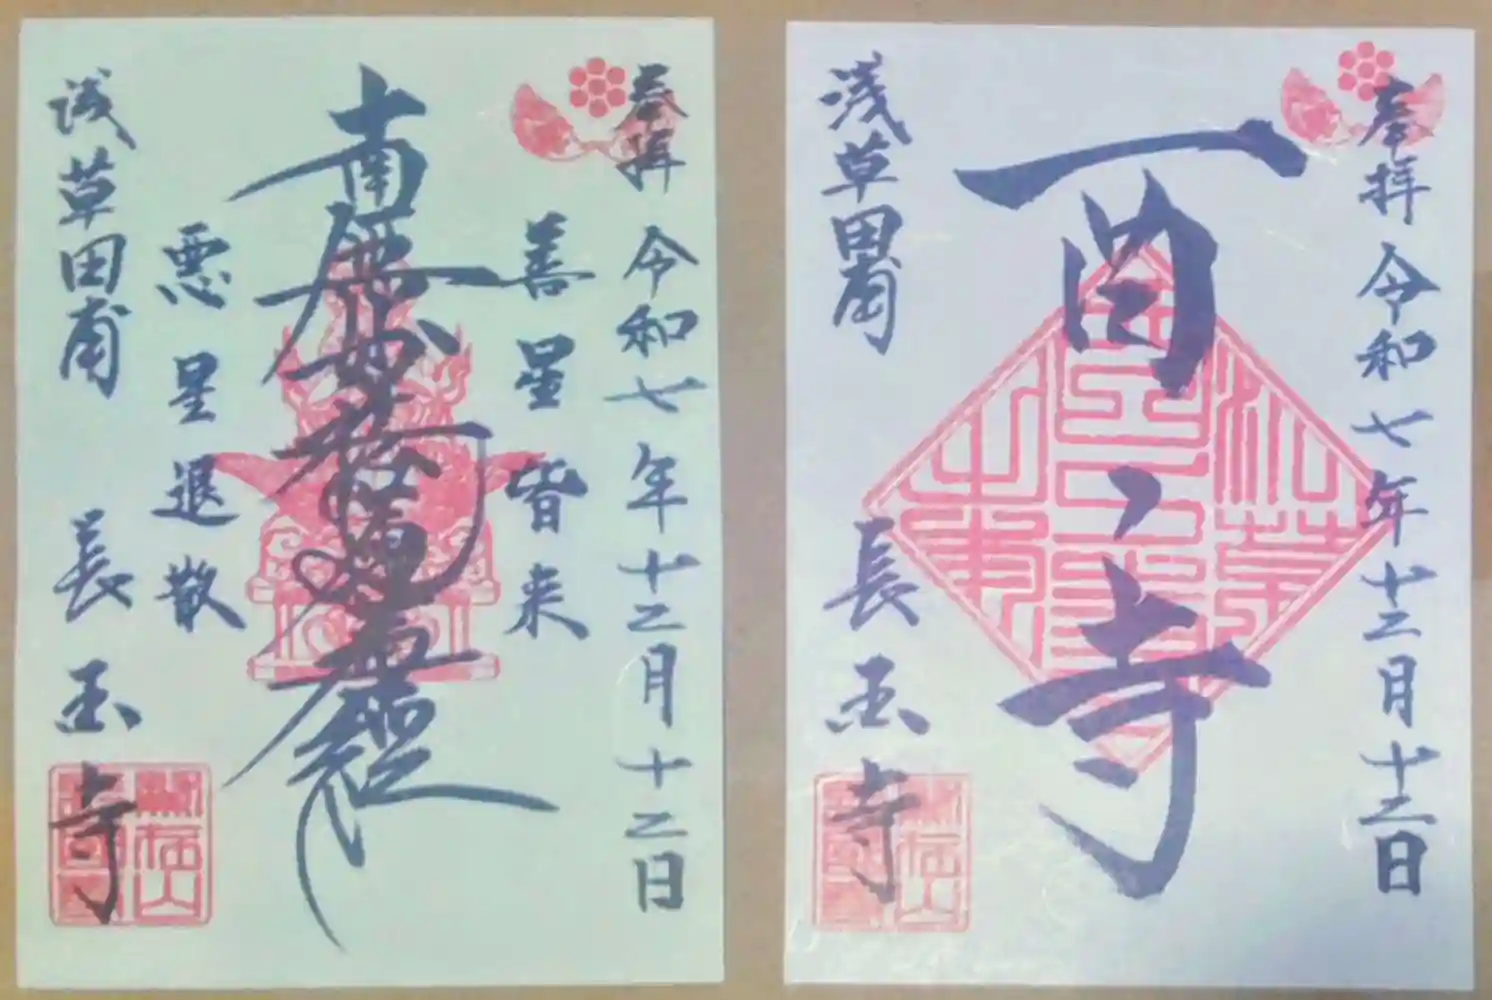 奉拝 令和七年十二月十二日
善星皆来
南無妙法蓮華經
悪星退散
浅草田甫 長国寺
奉拝 令和七年十二月十二日
酉ノ寺
浅草田甫 長国寺